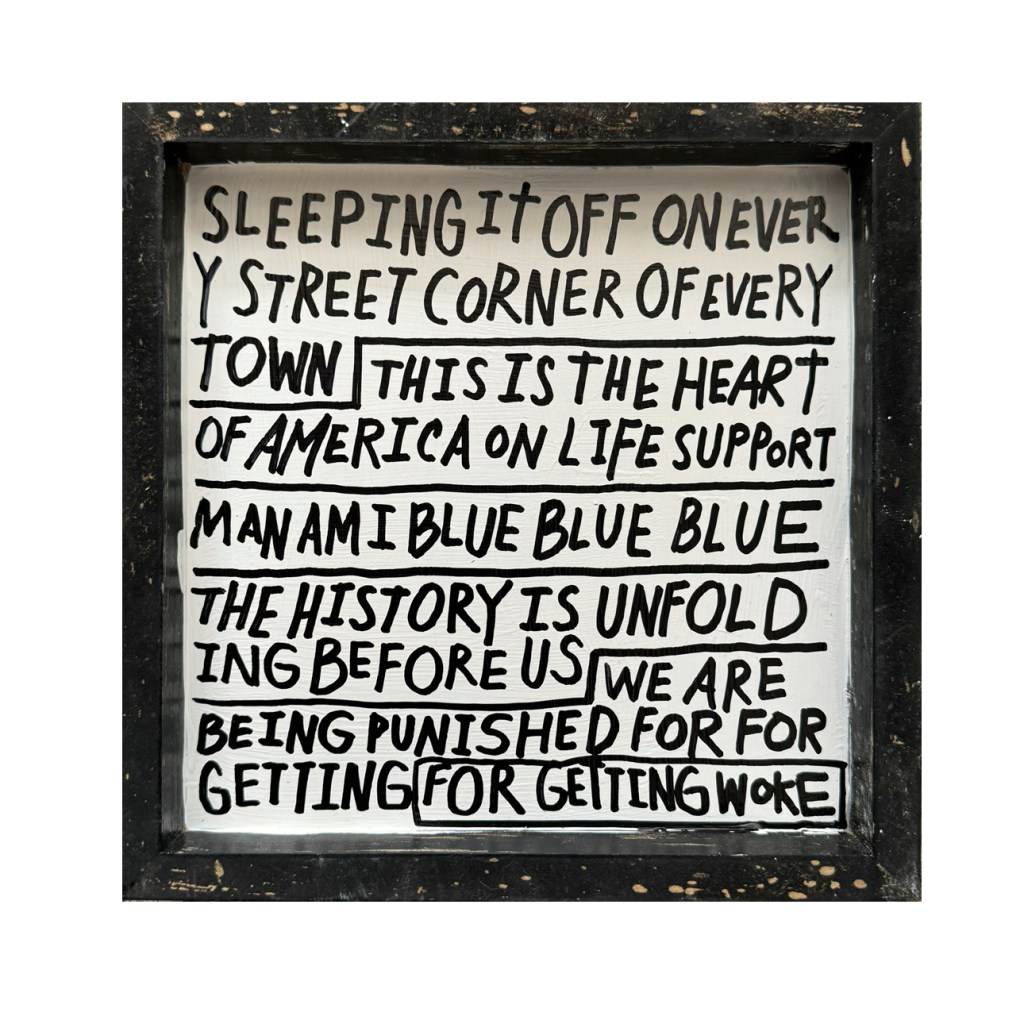 SLEEPING IT OFF ON EVER
Y STREET CORNER OF EVERY
TOWN THIS IS THE HEART
OF AMERICA ON LIFE SUPPORT
MAN AM I BLUE BLUE BLUE
THE HISTORY IS UNFOLD
ING BEFORE US WE ARE
BEING PUNISHED FOR FOR
GETTING FOR GETTING WOKE